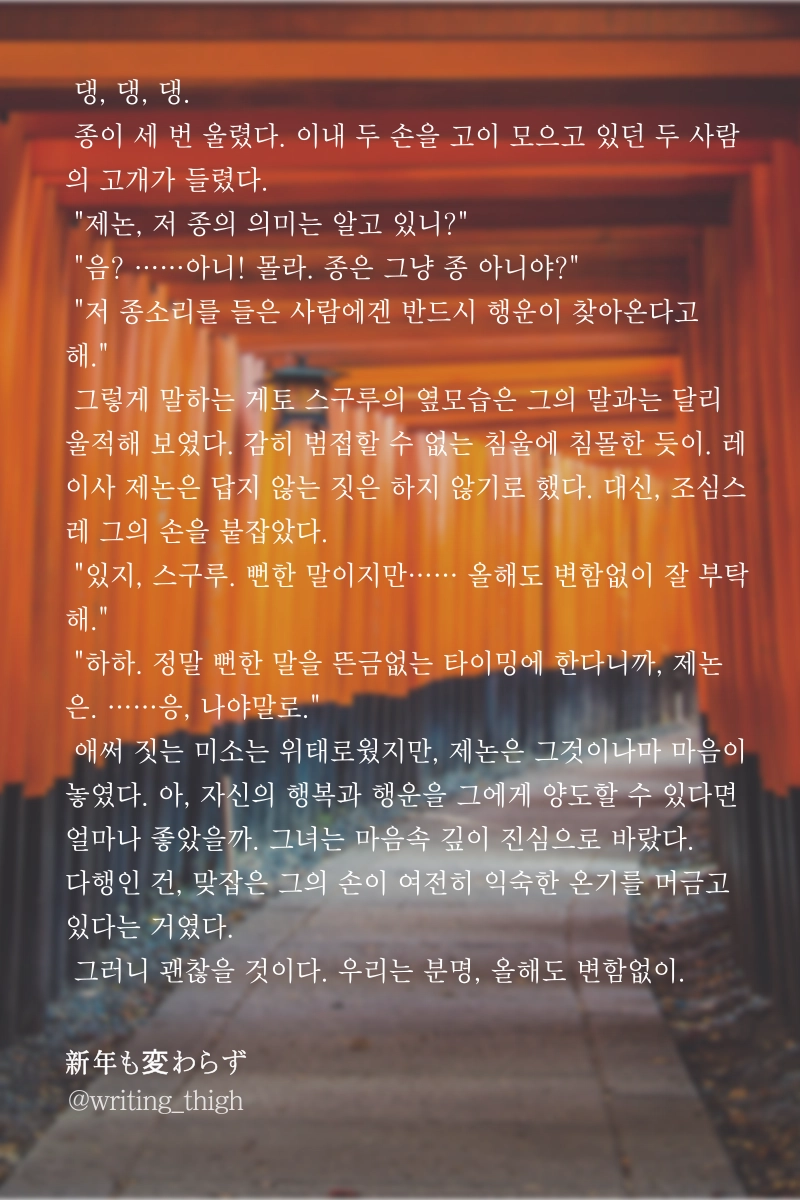 댕, 댕, 댕.
종이 세 번 울렸다. 이내 두 손을 고이 모으고 있던 두 사람
의 고개가 들렸다.
"제논, 저 종의 의미는 알고 있니?"
"음? ……아니! 몰라. 종은 그냥 종 아니야?"
"저 종소리를 들은 사람에겐 반드시 행운이 찾아온다고
해."
그렇게 말하는 게토 스구루의 옆모습은 그의 말과는 달리
울적해 보였다. 감히 범접할 수 없는 침울에 침몰한 듯이. 레
이사 제논은 답지 않는 짓은 하지 않기로 했다. 대신, 조심스
레 그의 손을 붙잡았다.
"있지, 스구루. 뻔한 말이지만…… 올해도 변함없이 잘 부탁
해."
"하하. 정말 뻔한 말을 뜬금없는 타이밍에 한다니까, 제논
은. ……응, 나야말로."
애써 짓는 미소는 위태로웠지만, 제논은 그것이나마 마음이
놓였다. 아, 자신의 행복과 행운을 그에게 양도할 수 있다면
얼마나 좋았을까. 그녀는 마음속 깊이 진심으로 바랐다.
다행인 건, 맞잡은 그의 손이 여전히 익숙한 온기를 머금고
있다는 거였다.
그러니 괜찮을 것이다. 우리는 분명, 올해도 변함없이.
新年も変わらず
@writing_thigh